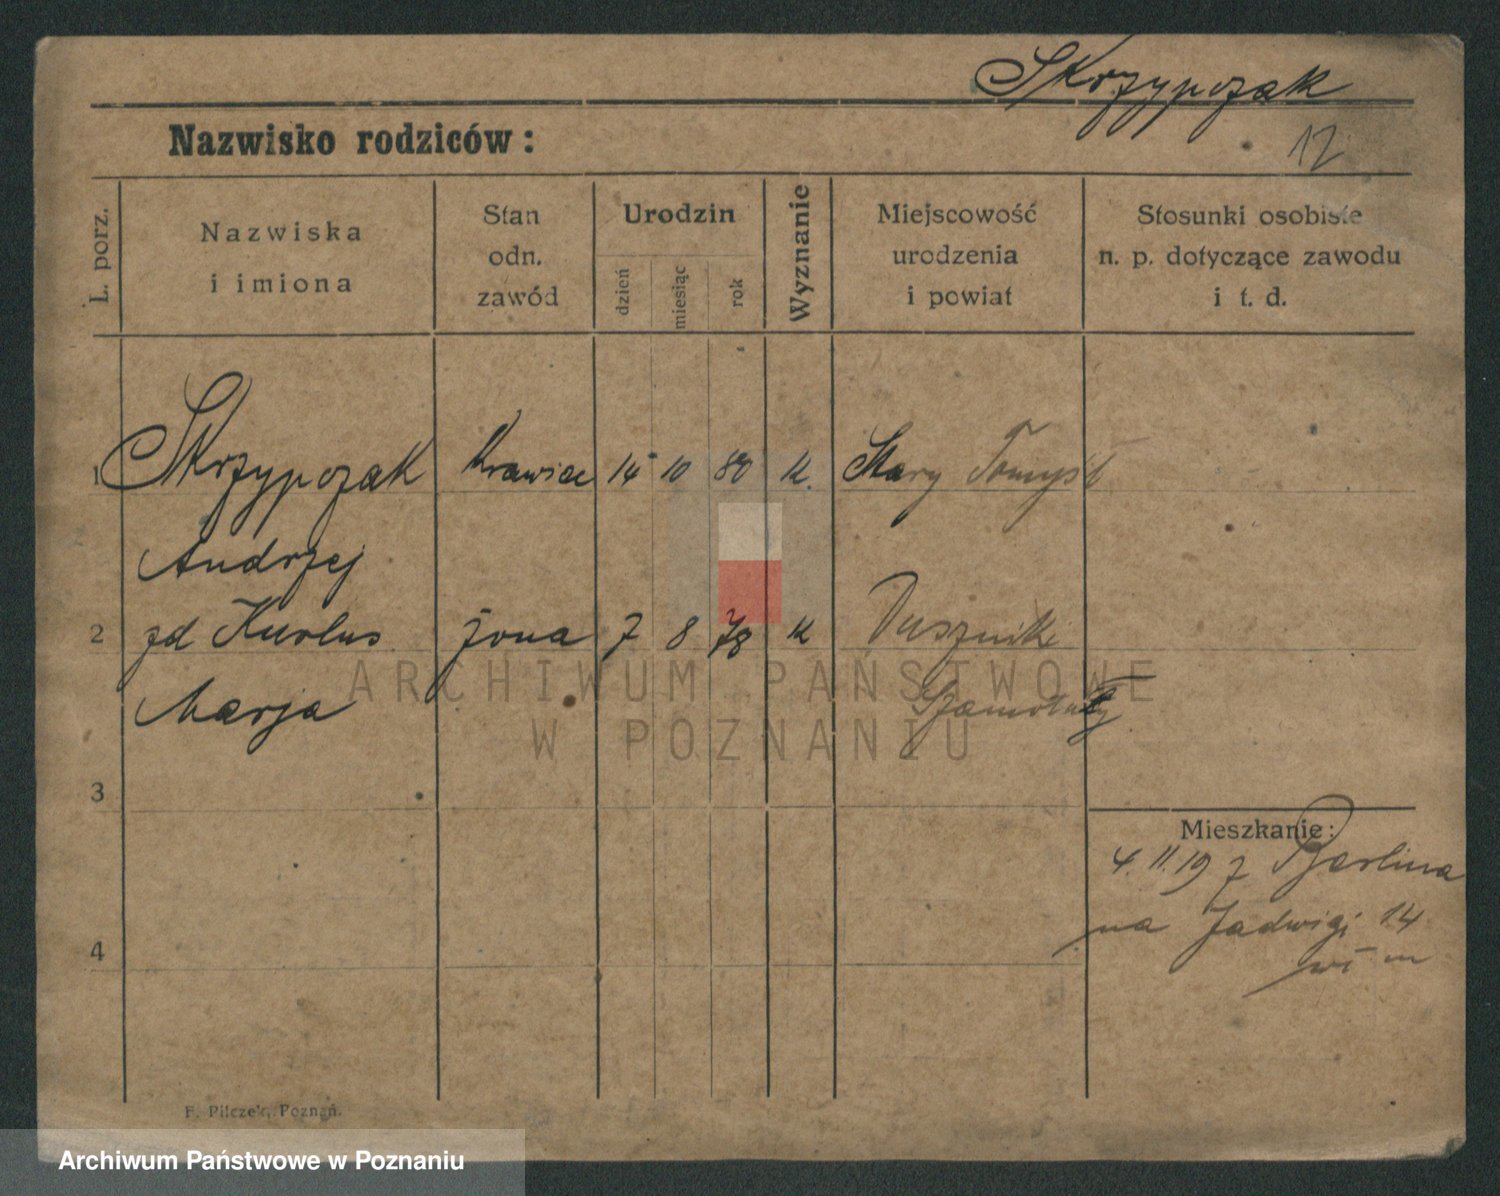 Skrzypczak
Nazwisko rodziców:
12
L. porz.
Nazwiska
i imiona
Stan
odn.
zawód
Urodzin
dzień
miesiąc
rok
Wyznanie
Miejscowość
urodzenia
i powiat
Stosunki osobiste
n. p. dotyczące zawodu
i t. d.
1 Skrzypczak Krawiec 14 10 80 k. Stary Tomyśl
Andrzej
2 zd Kurlus żona 7 8 78 k Duszniki
Marja Szamotuły
ARCHIWUM PAŃSTWOWE
W POZNANIU
3
Mieszkanie:
4. 11. 19 z Berlina
na Jadwigi 14
4
F. Pilczek, Poznań.
Archiwum Państwowe w Poznaniu